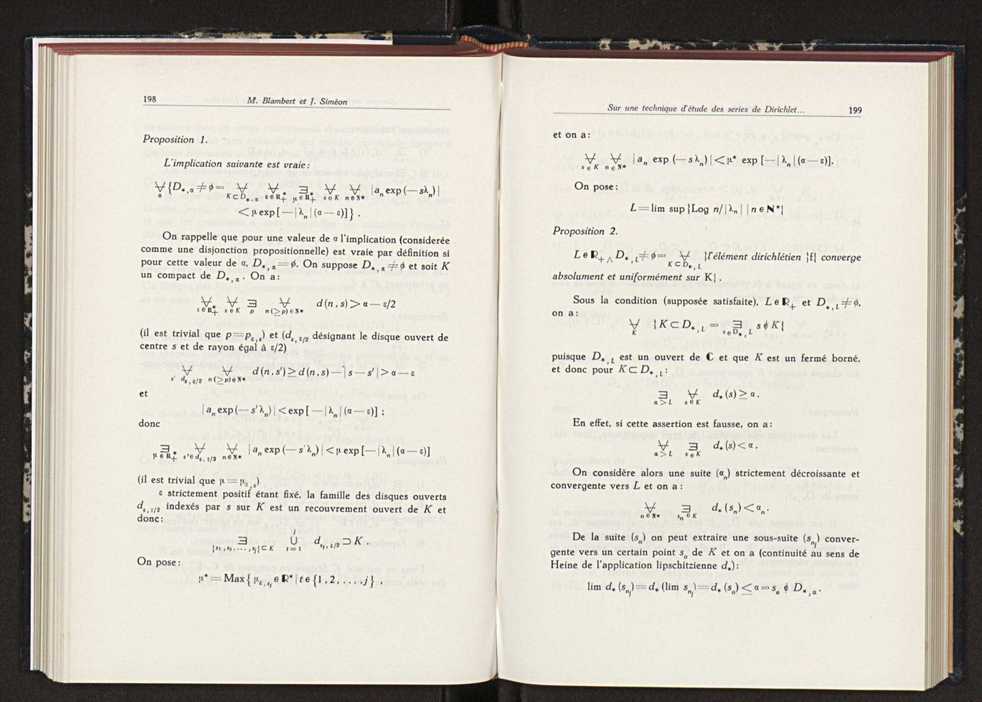 198
M. Blambert et J. Siméon
Proposition 1.
L'implication suivante est vraie:
∀_α {D_{*,α} ≠ φ = ∀_{K⊂D_{*,α}} ∀_{ε∈R*_+} ∃_{μ∈R*_+} ∀_{s∈K} ∀_{n∈N*} |a_n exp(—sλ_n)|
< μ exp[—|λ_n|(α—ε)]} .
On rappelle que pour une valeur de α l'implication (considerée
comme une disjonction propositionnelle) est vraie par définition si
pour cette valeur de α, D_{*,α} = φ. On suppose D_{*,α} ≠ φ et soit K
un compact de D_{*,α}. On a:
∀_{ε∈R*_+} ∀_{s∈K} ∃_p ∀_{n(≥p)∈N*} d(n,s) > α — ε/2
(il est trivial que p = p_{ε,s}) et (d_{s,ε/2} désignant le disque ouvert de
centre s et de rayon égal à ε/2)
∀_{s' d_{s,ε/2}} ∀_{n(≥p)∈N*} d(n,s') ≥ d(n,s) — |s — s'| > α — ε
et
|a_n exp(—s'λ_n)| < exp[—|λ_n|(α—ε)] ;
donc
∃_{μ∈R*_+} ∀_{s'∈d_{s,ε/2}} ∀_{n∈N*} |a_n exp(—s'λ_n)| < μ exp[—|λ_n|(α—ε)]
(il est trivial que μ = μ_{ε,s})
ε strictement positif étant fixé, la famille des disques ouverts
d_{s,ε/2} indexés par s sur K est un recouvrement ouvert de K et
donc:
∃_{{s_1,s_2,...,s_j}⊂K} ∪_{t=1}^{j} d_{s_t,ε/2} ⊃ K .
On pose:
μ* = Max{μ_{ε,s_t} ∈ R* | t ∈ {1,2,...,j}} ,
Sur une technique d'étude des series de Dirichlet...
199
et on a:
∀_{s∈K} ∀_{n∈N*} |a_n exp(—sλ_n)| < μ* exp[—|λ_n|(α—ε)].
On pose:
L = lim sup {Log n/|λ_n| | n∈N*}
Proposition 2.
L∈R_+ ∧ D_{*,L} ≠ φ = ∀_{K⊂D_{*,L}} {l'élément dirichlétien {f} converge
absolument et uniformément sur K} .
Sous la condition (supposée satisfaite), L∈R_+ et D_{*,L} ≠ φ,
on a:
∀_K {K⊂D_{*,L} = ∃_{s∈D_{*,L}} s∉K}
puisque D_{*,L} est un ouvert de C et que K est un fermé borné,
et donc pour K⊂D_{*,L}:
∃_{α>L} ∀_{s∈K} d_*(s) ≥ α.
En effet, si cette assertion est fausse, on a:
∀_{α>L} ∃_{s∈K} d_*(s) < α.
On considère alors une suite (α_n) strictement décroissante et
convergente vers L et on a:
∀_{n∈N*} ∃_{s_n∈K} d_*(s_n) < α_n.
De la suite (s_n) on peut extraire une sous-suite (s_{n_j}) conver-
gente vers un certain point s_o de K et on a (continuité au sens de
Heine de l'application lipschitzienne d_*):
lim d_*(s_{n_j}) = d_*(lim s_{n_j}) = d_*(s_o) ≤ α = s_o ∉ D_{*,α}.